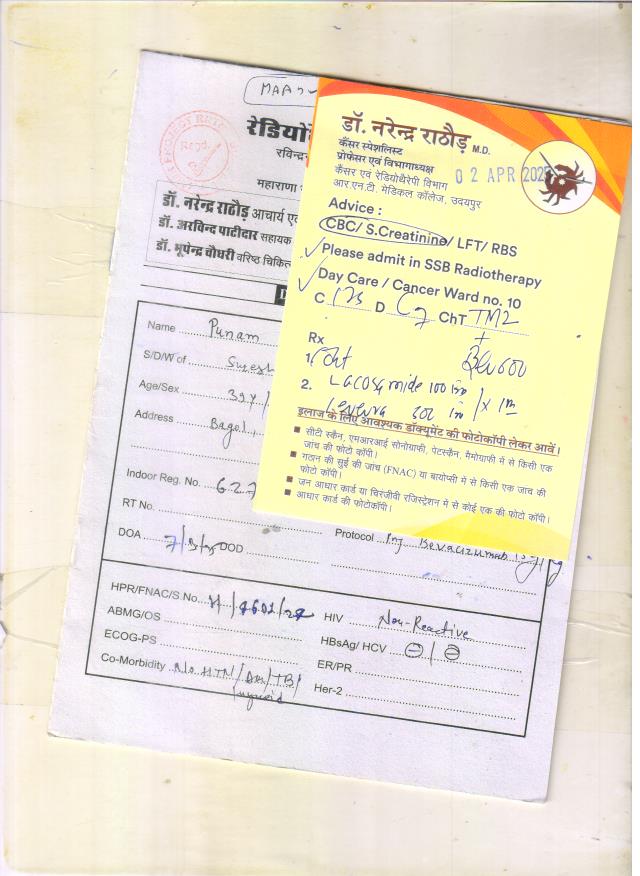 MAA
रेडियो
रविन्द्र
महाराणा
डॉ. नरेन्द्र राठौड़ आचार्य एवं
डॉ. अरविन्द पाटीदार सहायक
डॉ. भूपेन्द्र चौधरी वरिष्ठ चिकि
Name Punam
S/D/W of Suresh
Age/Sex 39Y/
Address Bagol,
Indoor Reg. No. 627
RT No.
DOA DOD
Protocol Inj Bevacizumab
HPR/FNAC/S.No. H/ HIV Non-Reactive
ABMG/OS HBsAg/ HCV ⊖ / ⊖
ECOG-PS ER/PR
Co-Morbidity No HTN/DM/TB/ Her-2
Thyroid
डॉ. नरेन्द्र राठौड़ M.D.
कैंसर स्पेशलिस्ट
प्रोफेसर एवं विभागाध्यक्ष
02 APR 202
कैंसर एवं रेडियोथैरेपी विभाग
आर.एन.टी. मेडिकल कॉलेज, उदयपुर
Advice :
CBC/ S.Creatinine/ LFT/ RBS
✓ Please admit in SSB Radiotherapy
✓ Day Care / Cancer Ward no. 10
C D C7 ChT TMZ
+
Rx Bev 600
1.
2. Lacosamide 100
Levera 500 x 1m
इलाज के लिए आवश्यक डॉक्यूमेंट की फोटोकॉपी लेकर आवें।
■ सीटी स्कैन, एमआरआई सोनोग्राफी, पेटस्कैन, मैमोग्राफी में से किसी एक
जांच की फोटो कॉपी।
■ गठान की सुई की जांच (FNAC) या बायोप्सी में से किसी एक जांच की
फोटो कॉपी।
■ जन आधार कार्ड या चिरंजीवी रजिस्ट्रेशन में से कोई एक की फोटो कॉपी।
■ आधार कार्ड की फोटोकॉपी।